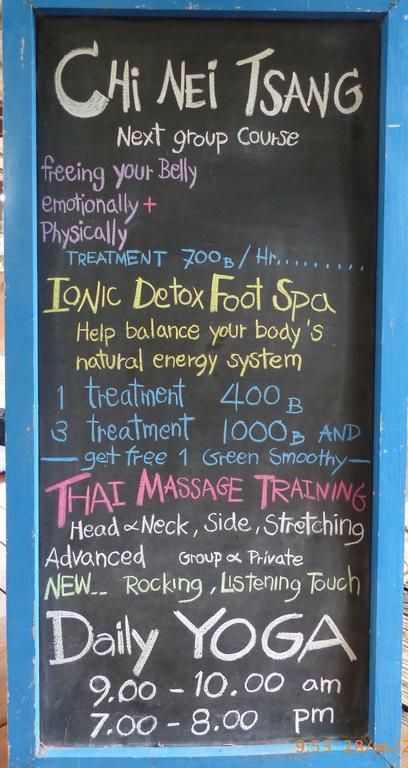 CHi NEi TSANG
Next group Course
freeing your Belly
emotionally +
Physically
TREATMENT 700B / Hr..........
IONIC DETOX FOOT SPA
Help balance your body's
natural energy system
1 treatment 400 B
3 treatment 1000B AND
— get free 1 Green Smoothy —
THAI MASSAGE TRAINING
Head & Neck, Side, Stretching
Advanced Group & Private
NEW... Rocking, Listening Touch
Daily YOGA
9.00 - 10.00 am
7.00 - 8.00 pm
9:53 28/